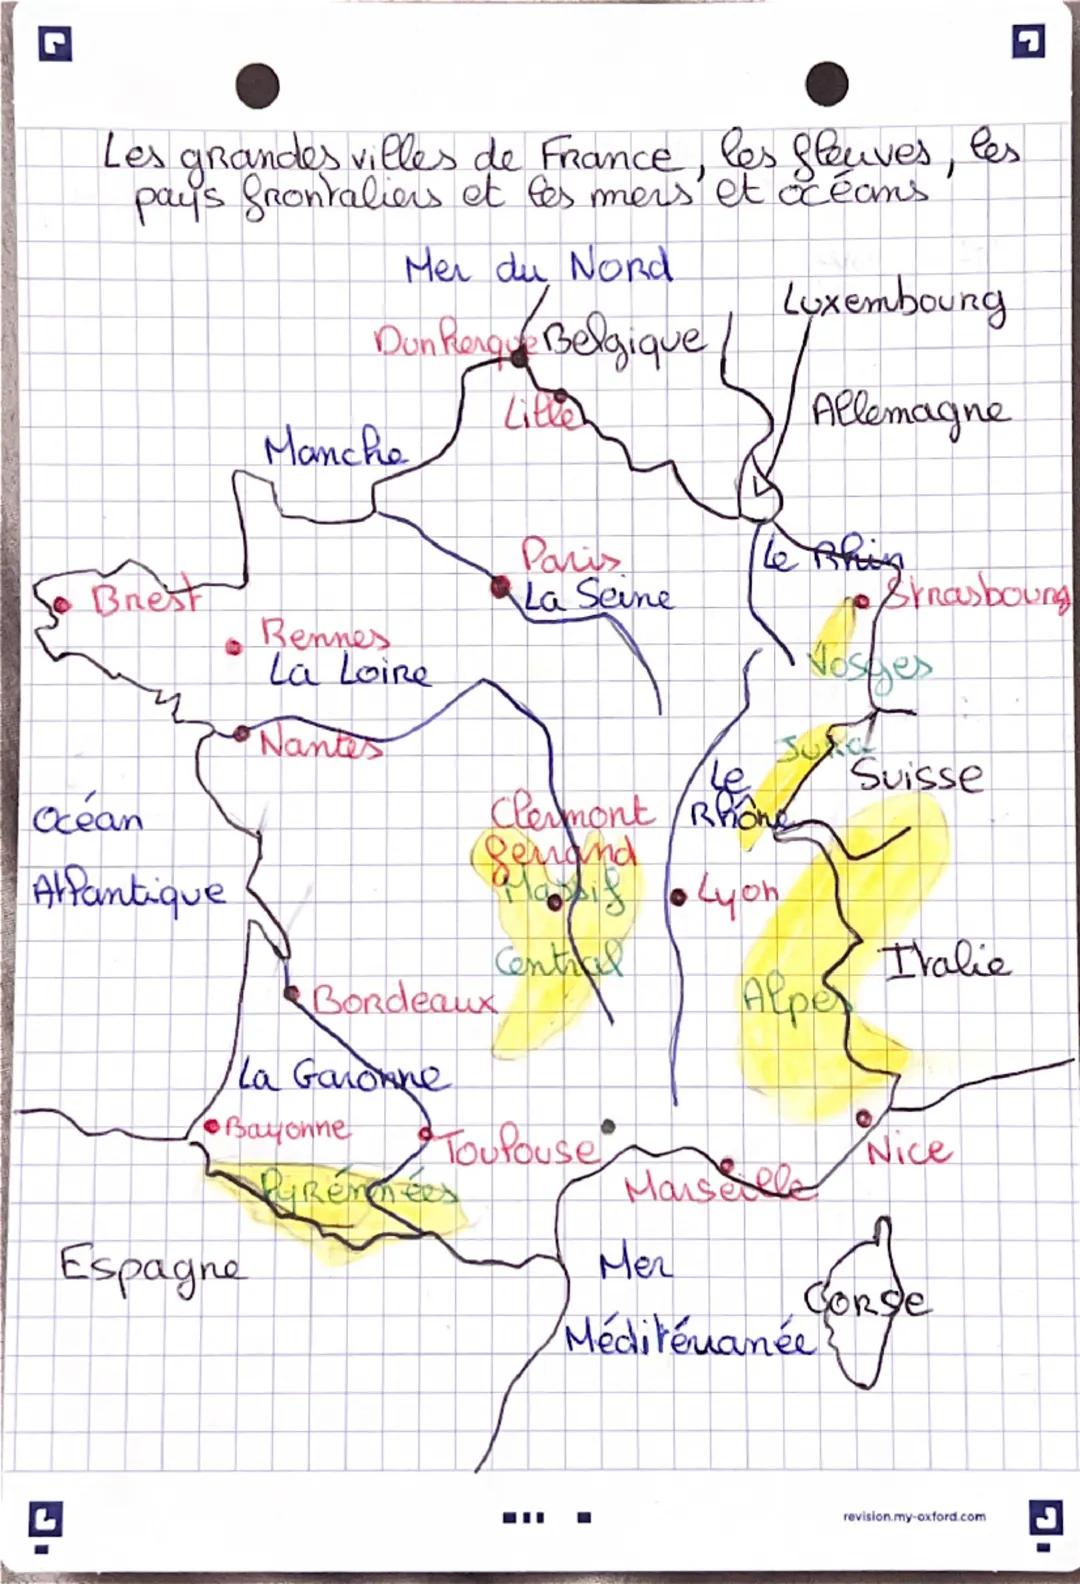 Les grandes villes de France, les fleuves, les
pays frontaliers et les mers et océans
Mer du Nord
Luxembourg
Dunkerque
Belgique
Lille
Allemagne
Manche
L
Paris
Le Rhin
La Seine
Brest
Strasbourg
Rennes
La Loire
Vosges
Nantes
Jura
Suisse
Le
Rhône
Océan
Atlantique
Clermont
ferrand
Massif
Central
Lyon
Italie
Alpes
Bordeaux
La Garonne
Bayonne
Toulouse
Nice
Marseille
Pyrémnées
Espagne
Mer
Méditérranée
Corse
revision.my-oxford.com